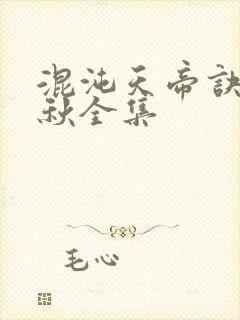 混沌天帝诀
秋全集
毛心